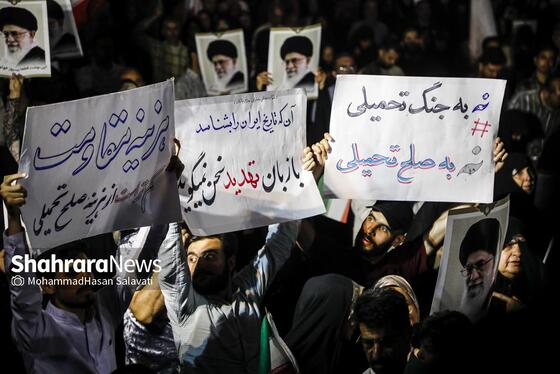 هزینه مقاومت
کمتر است از هزینه صلح تحمیلی
آن که تاریخ ایران را بشناسد
با زبان تهدید سخن نمیگوید
نه به جنگ تحمیلی
#
نه به صلح تحمیلی
ShahraraNews
@MohammadHasan Salavati